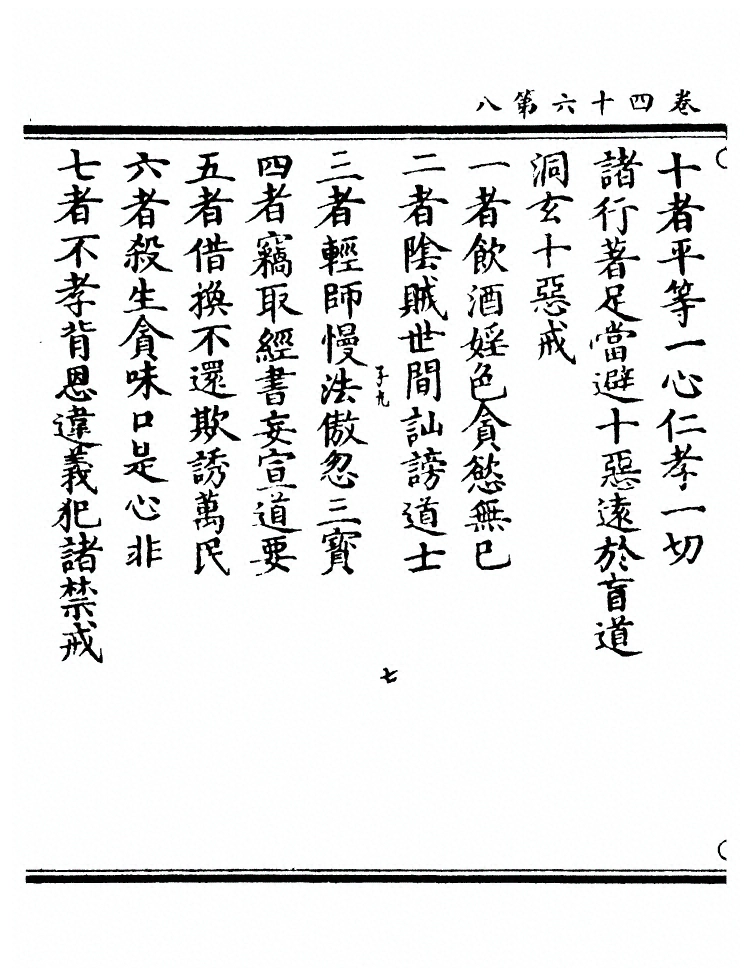 卷四十六第八
十者平等一心仁孝一切
諸行著足當避十惡遠於盲道
洞玄十惡戒
一者飲酒婬色貪慾無已
二者陰賊世間訕謗道士
子九
七
三者輕師慢法傲忽三寶
四者竊取經書妄宣道要
五者借換不還欺誘萬民
六者殺生貪味口是心非
七者不孝背恩違義犯諸禁戒